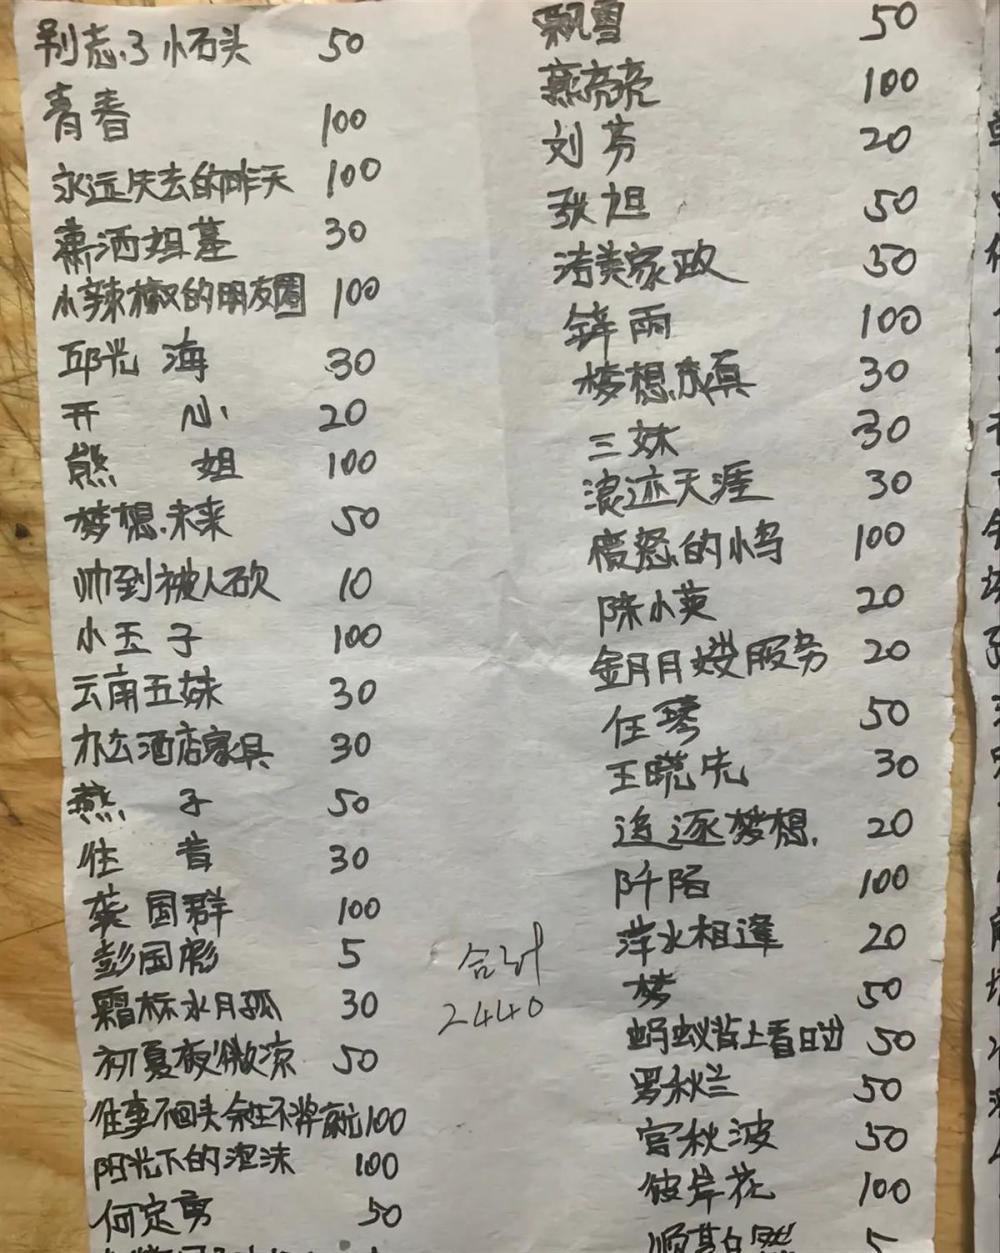 别志.3 小石头 50
青春 100
永远失去的昨天 100
萧洒姐墓 30
小辣椒的朋友圈 100
邱光海 30
开心 20
熊姐 100
梦想.未来 50
帅到被人砍 10
小玉子 100
云南五妹 30
办公酒店家具 30
燕子 50
往昔 30
龚国群 100
彭国彪 5
霜标水月孤 30
初夏夜微凉 50
往事不回头余生不将就 100
阳光下的泡沫 100
何定勇 50
飘雪 50
燕亮亮 100
刘芬 20
张旭 50
洁美家政 50
锌雨 100
梦想成真 30
三妹 30
浪迹天涯 30
愤怒的小鸟 100
陈小英 20
月嫂服务 20
任琴 50
王晓先 30
追逐梦想. 20
阡陌 100
萍水相逢 20
梦 50
蚂蚁背上看日出 50
罗秋兰 50
宫秋波 50
彼岸花 100
顺其自然 5
合计
2440